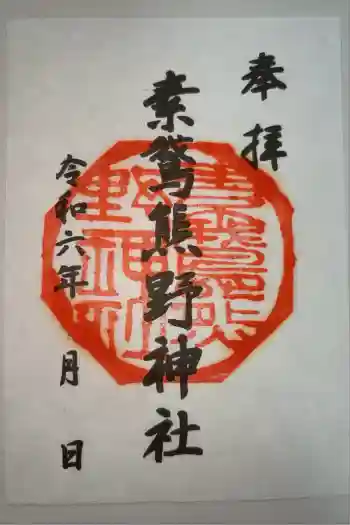 奉拝
素鵞熊野神社
令和六年 月 日